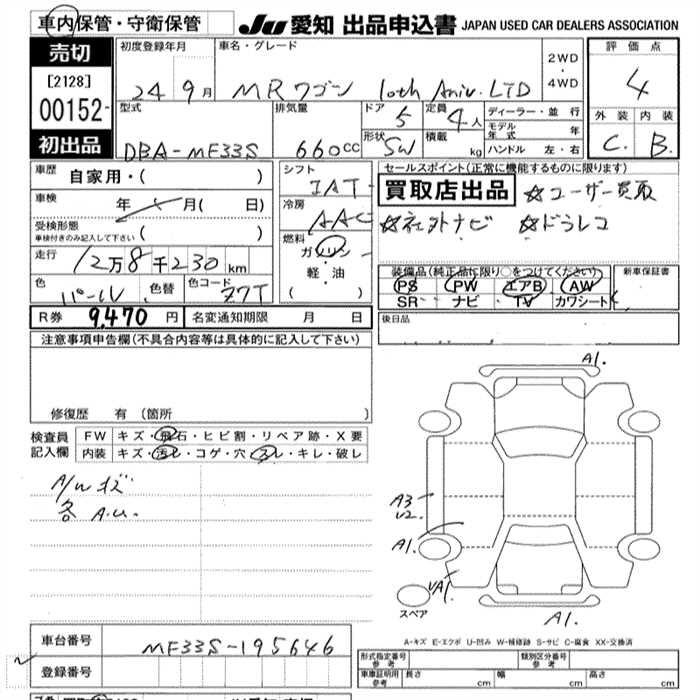 車内保管・守衛保管
JU 愛知 出品申込書 JAPAN USED CAR DEALERS ASSOCIATION
売切
[2128]
00152-
初出品
初度登録年月
24 9月
車名・グレード
MRワゴン 10th Aniv. LTD
2WD
・
4WD
評価点
4
外装 内装
C. B.
型式
DBA-MF33S
排気量
660cc
ドア
5
形状
SW
定員
4人
積載
kg
ディーラー・並 行
モデル年式 年
ハンドル 左・右
車歴
自家用・( )
車検
年 月( 日)
受検形態
車検付きのみ記入して下さい ( )
走行
12万8千230km
色
パール
色替
色コード
Z7T
R券 9,470 円 名変通知期限 月 日
シフト
IAT
冷房
AAC
燃料
ガソリン
軽・油
( )
セールスポイント(正常に機能するものに限ります)
買取店出品 ☆ユーザー買取
☆社外ナビ ☆ドラレコ
装備品(純正品に限り○をつけてください)
PS PW エアB AW
SR ナビ TV カワシート
新車保証書
後日品
注意事項申告欄(不具合内容等は具体的に記入して下さい)
修復歴 有 (箇所 )
検査員記入欄
FW キズ・飛石・ヒビ割・リペア跡・X要
内装 キズ・汚レ・コゲ・穴・スレ・キレ・破レ
A/Wキズ
各A.U.
A1.
A3
U2.
A1.
A1.
A1.
スペア
A-キズ E-エクボ U-凹み W-補修跡 S-サビ C-腐食 XX-交換済
車台番号 MF33S-195646
登録番号
形式指定番号 参考
類別区分番号 参考
車庫証明用 参考 長さ cm 幅 cm 高さ cm